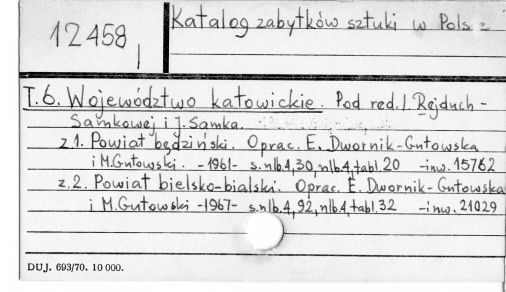 12458
Katalog zabytków sztuki w Pols z
T.6. Województwo katowickie. Pod red. I. Rejduch-
Samkowej i J. Samka.
z 1. Powiat będziński. Oprac. E. Dwornik-Gutowska
i M.Gutowski. -1961- s.nlb.4,30,nlb.4,tabl.20 -inw.15762
z.2. Powiat bielsko-bialski. Oprac. E. Dwornik-Gutowska
i M.Gutowski -1967- s.nlb.4,92,nlb.4,tabl.32 -inw. 21029
DUJ. 693/70. 10 000.